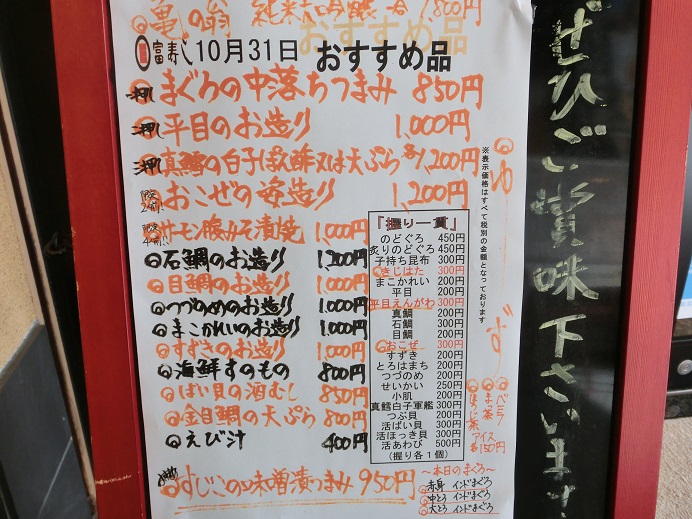 亀の翁 純米大吟醸 一合 1,800円
富寿し 10月31日 おすすめ品
一押し まぐろの中落ちつまみ 850円
二押し 平目のお造り 1,000円
三押し 真鱈の白子ぽん酢又は天ぷら 各1,200円
限定2命! おこぜの姿造り 1,200円
サーモン腹みそ漬焼 1,000円
石鯛のお造り 1,200円
目鯛のお造り 1,000円
つづのめのお造り 1,000円
まこかれいのお造り 1,000円
すずきのお造り 1,000円
海鮮すのもの 800円
ばい貝の酒むし 850円
金目鯛の天ぷら 800円
えび汁 400円
すじこの味噌漬つまみ 950円
『握り一貫』
のどぐろ 450円
炙りのどぐろ 450円
子持ち昆布 300円
きじはた 300円
まこかれい 200円
平目 200円
平目えんがわ 300円
真鯛 200円
石鯛 300円
目鯛 200円
おこぜ 300円
すずき 200円
とろはまち 200円
つづのめ 200円
せいかい 250円
小肌 200円
真鱈白子軍艦 300円
つぶ貝 200円
活ばい貝 300円
活ほっき貝 300円
活あわび 500円
(握り各1個)
※表示価格はすべて税別の金額となっております
ゆず
バニラ
まっ茶
ほうじ茶
アイス
各150円
〜本日のまぐろ〜
赤身 インドまぐろ
中とろ インドまぐろ
大とろ インドまぐろ
ぜひご賞味下さいませ